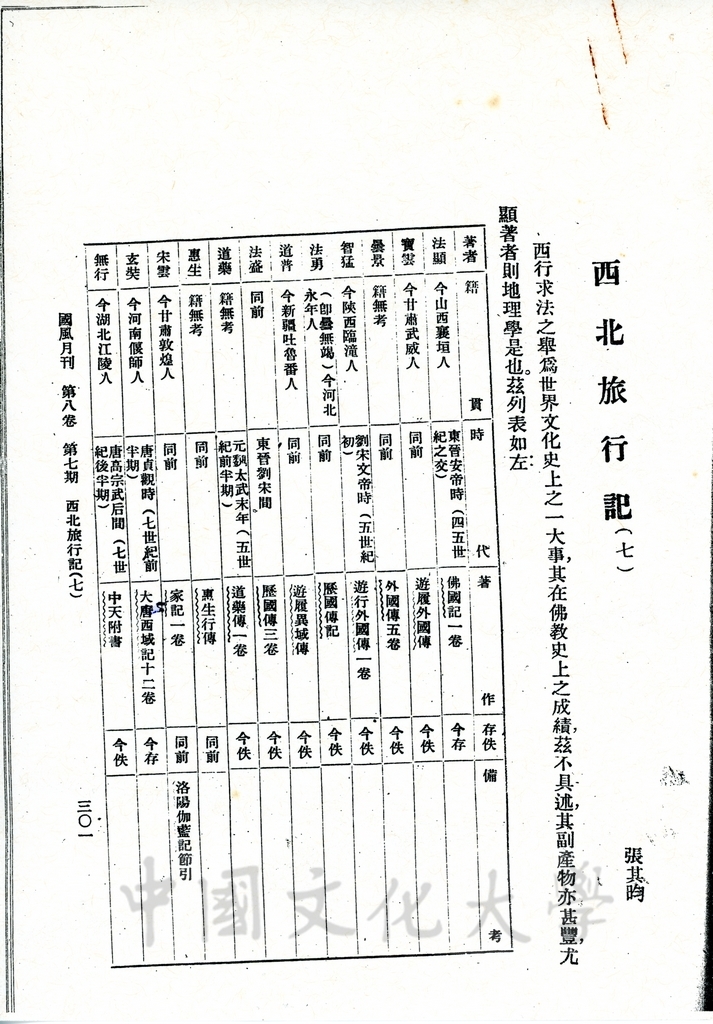 西北旅行記(七)
張其昀
西行求法之舉爲世界文化史上之一大事，其在佛教史上之成績，茲不具述，其副產物亦甚豐，尤
顯著者則地理學是也。茲列表如左：
著者 籍貫 時代 著作 存佚 備考
法顯 今山西襄垣人 東晉安帝時（四五世紀之交） 佛國記一卷 今存
寶雲 今甘肅武威人 同前 遊履外國傳 今佚
曇景 籍無考 同前 外國傳五卷 今佚
智猛 今陝西臨潼人 劉宋文帝時（五世紀初） 遊行外國傳一卷 今佚
法勇 （卽曇無竭）今河北永年人 同前 歷國傳記 今佚
道普 今新疆吐魯番人 同前 遊履異域傳 今佚
法盛 同前 東晉劉宋間 歷國傳三卷 今佚
道藥 籍無考 元魏太武末年（五世紀前半期） 道藥傳一卷 今佚
惠生 籍無考 同前 惠生行傳 同前
宋雲 今甘肅敦煌人 同前 家記一卷 同前 洛陽伽藍記節引
玄奘 今河南偃師人 唐貞觀時（七世紀前半期） 大唐西域記十二卷 今存
無行 今湖北江陵人 唐高宗武后間（七世紀後半期） 中天附書 今佚
國風月刊 第八卷 第七期 西北旅行記(七)
三〇一
中國文化大學